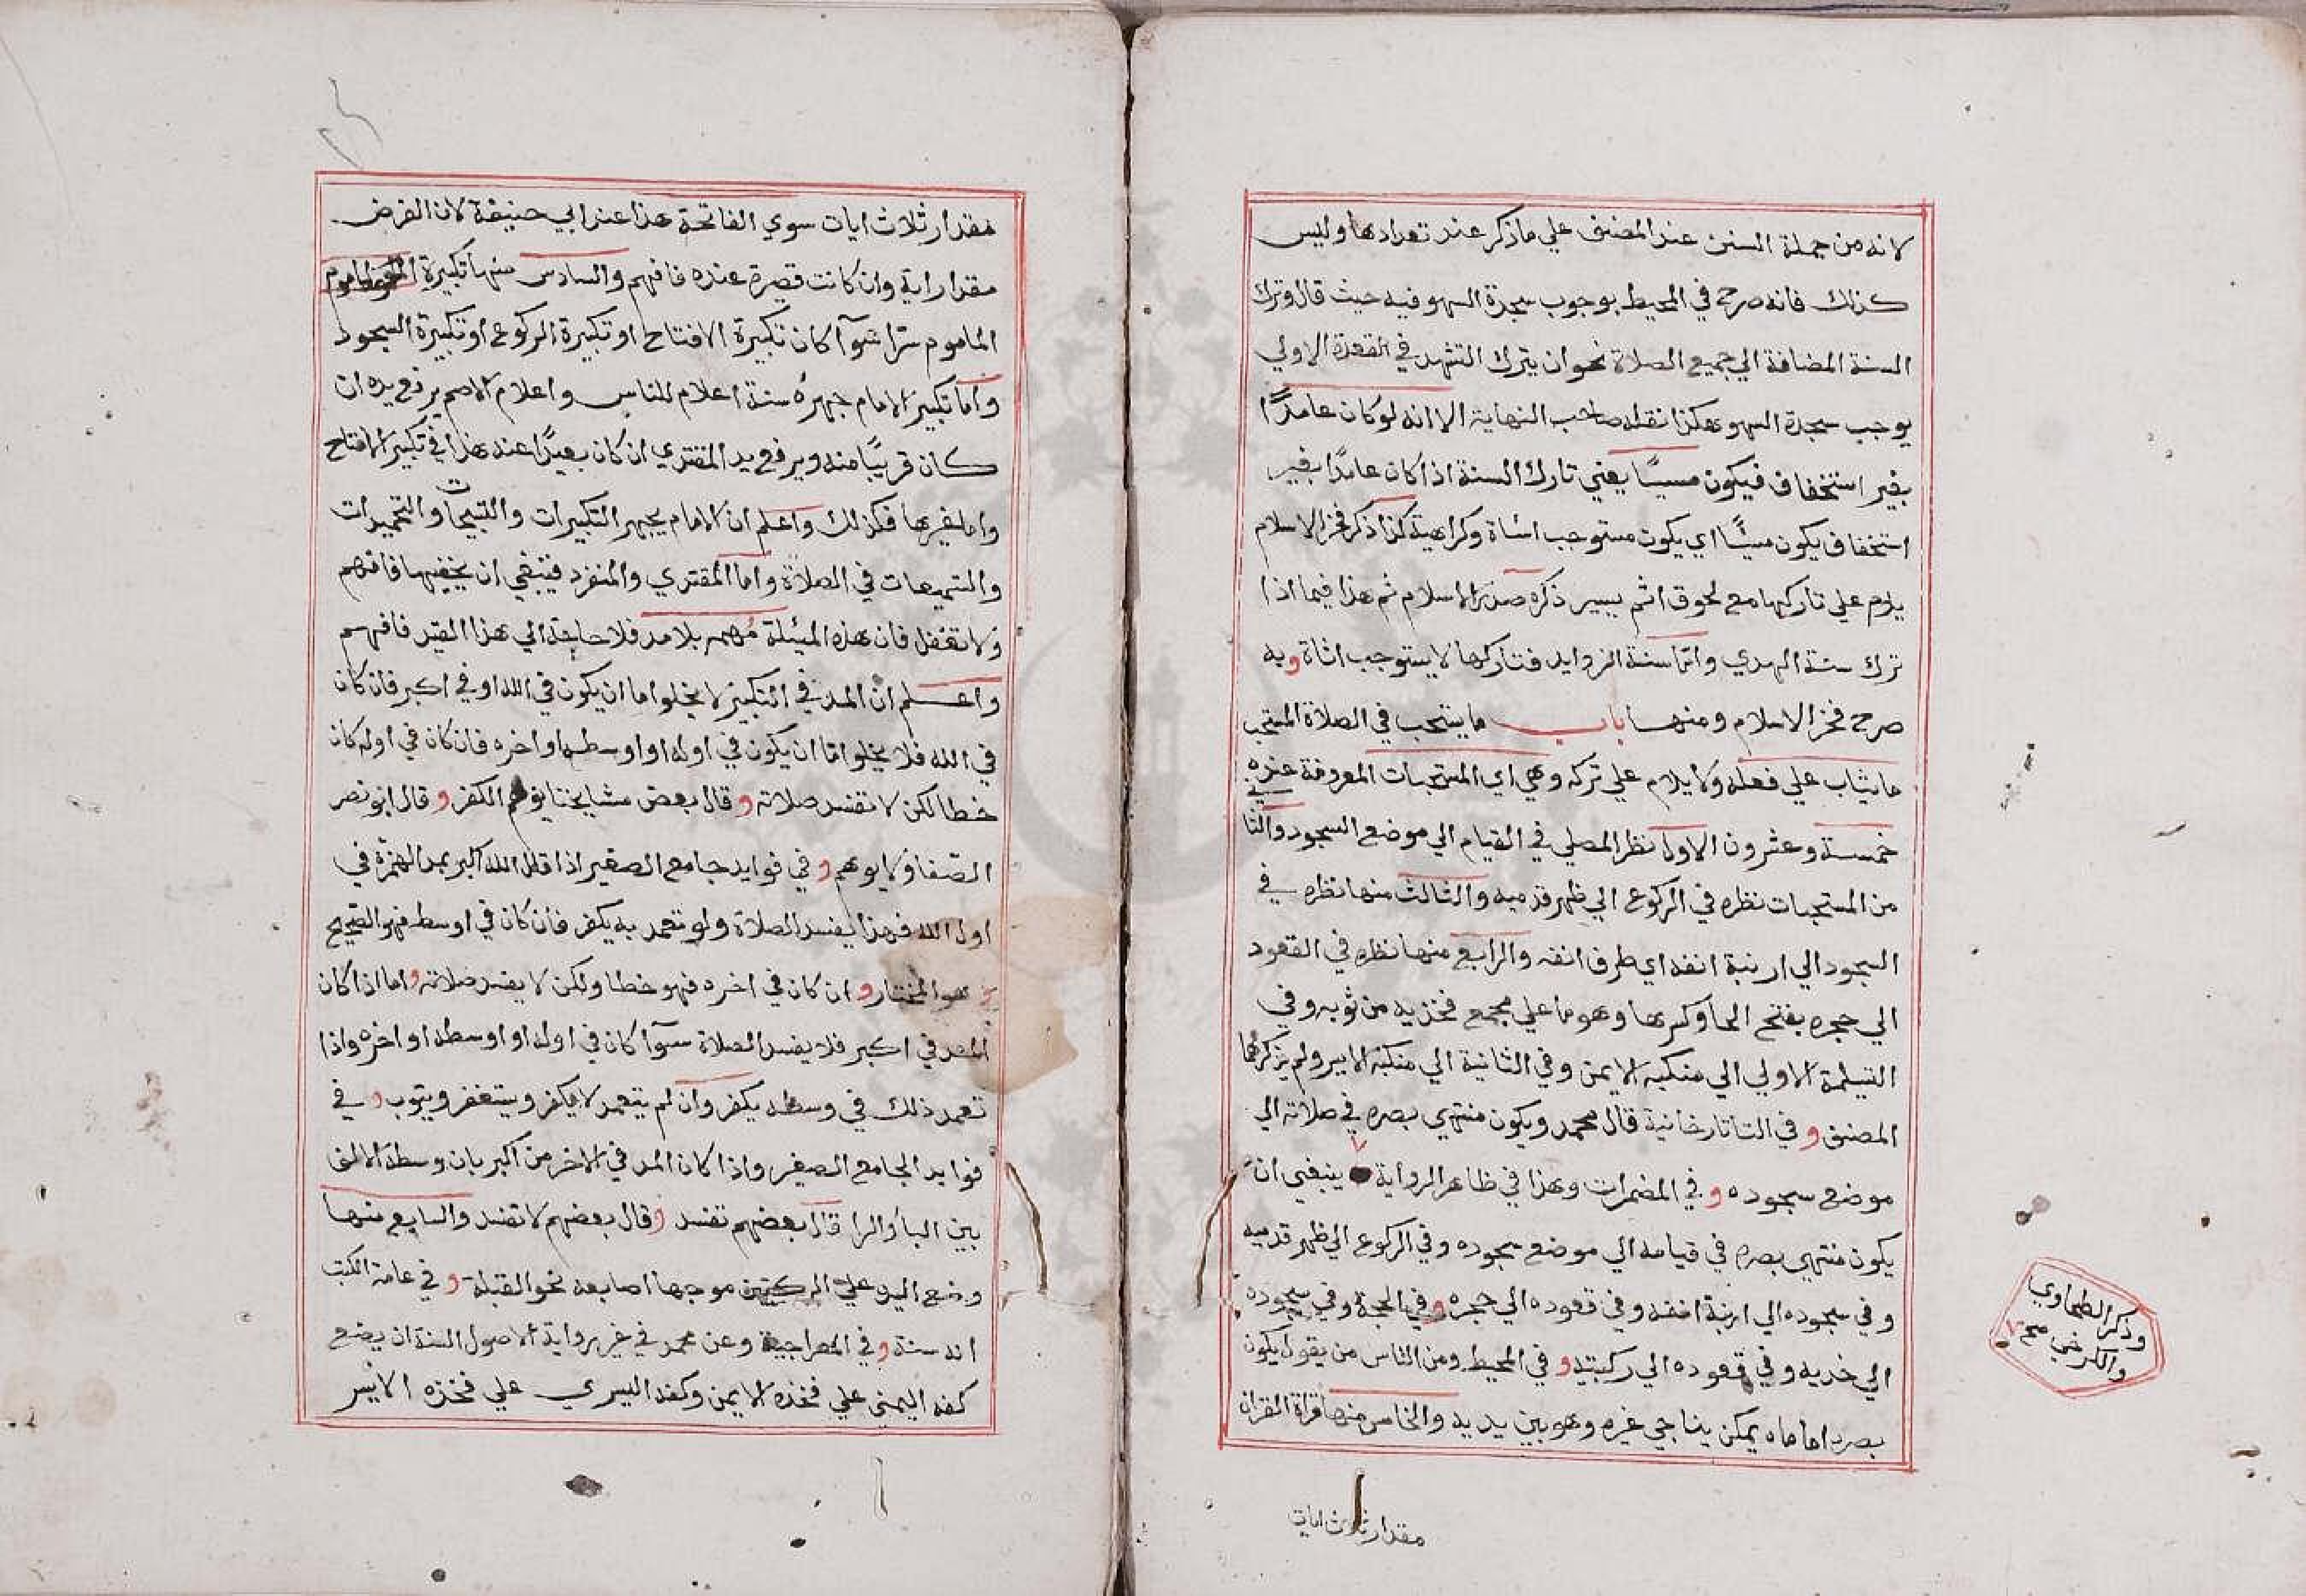 لانه من جملة السنن عند المصنف علي ما ذكر عند تعدادها وليس
كذلك فانه صرح في المحيط بوجوب سجدة السهو فيه حيث قال وترك
السنة المضافة الي جميع الصلاة نحو ان يترك التشهد في القعدة الاولي
يوجب سجدة السهو هكذا نقله صاحب النهاية الا انه لو كان عامدًا
بغير استخفاف فيكون مسيئًا يعني تارك السنة اذا كان عامدًا بغير
استخفاف يكون مسيئًا اي يكون مستوجب اساة وكراهية كذا ذكر فخر الاسلام
يلام علي تاركها مع لحوق اثم يسير ذكره صدر الاسلام ثم هذا فيما اذا
ترك سنة الهدي واما سنة الزوايد فتاركها لا يستوجب اثاة وبه
صرح فخر الاسلام ومنها باب ما يستحب في الصلاة المستحب
ما يثاب علي فعله ولا يلام علي تركه وهي اي المستحبات المعروفة عنده
خمسة وعشرون الاول نظر المصلي في القيام الي موضع السجود والثاني
من المستحبات نظره في الركوع الي ظهر قدميه والثالث منها نظره في
السجود الي ارنبة انفه اي طرف انفه والرابع منها نظره في القعود
الي حجره بفتح الحا وكسرها وهو ما علي مجمع فخذيه من ثوبه وفي
التسليمة الاولي الي منكبه الايمن وفي الثانية الي منكبه الايسر ولم يذكرهما
المصنف و في التاتارخانية قال محمد ويكون منتهي بصره في صلاته الي
موضع سجوده و في المضمرات وهذا في ظاهر الرواية ينبغي ان
يكون منتهي بصره في قيامه الي موضع سجوده وفي الركوع الي ظهر قدميه
وفي سجوده الي ارنبة انفه وفي قعوده الي حجره وفي الحجة وفي سجوده
الي خديه وفي قعوده الي ركبتيه و في المحيط ومن الناس من يقول يكون
بصره امامه يمكن يناجي غيره وهو بين يديه والخامس منها قراة القران
وذكر الطحاوي
والكرخي صح
مقدار ثلاث ايات
مقدار ثلاث ايات سوي الفاتحة هذا عند ابي حنيفة لان الفرض
مقدار اية وان كانت قصيرة عنده فافهم والسادس منها تكبيرة
الماموم سرا سوآ كان تكبيرة الافتتاح او تكبيرة الركوع او تكبيرة السجود
واما تكبير الامام جهره سنة اعلام للناس واعلام الاصم يرفع يده ان
كان قريبًا منه ويرفع يد المقتدي ان كان بعيدًا عنه هذا في تكبير الافتتاح
واما غيرها فكذلك واعلم ان الامام يجهر التكبيرات والتسبيحات والتحميدات
والتسميعات في الصلاة واما المقتدي والمنفرد فينبغي ان يخفيها فافهم
ولا تغفل فان هذه المسئلة مهمه بلا مد فلا حاجة الي هذا القيد فافهم
واعلم ان المد في التكبير لا يخلوا اما ان يكون في الله او في اكبر فان كان
في الله فلا يخلوا اما ان يكون في اوله او اوسطه او اخره فان كان في اوله كان
خطا لكن لا تفسد صلاته و قال بعض مشايخنا يوهم الكفر و قال ابو نصر
الصفار لا يوهم و في فوايد جامع الصغير اذا قال الله اكبر بمد الهمزة في
اول الله فهذا يفسد الصلاة ولو تعمد به يكفر فان كان في اوسطه فهو الصحيح
هو المختار و ان كان في اخره فهو خطا ولكن لا يفسد صلاته و اما اذا كان
المد في اكبر فلا يفسد الصلاة سوآ كان في اوله او اوسطه او اخره واذا
تعمد ذلك في وسطه يكفر وان لم يتعمد لا يكفر ويستغفر ويتوب و في
فوايد الجامع الصغير واذا كان المد في الاخر من اكبر بان وسطه الالف
بين البا والرا قال بعضهم تفسد و قال بعضهم لا تفسد والسابع منها
وضع اليد علي الركبتين موجها اصابعه نحو القبلة و في عامة الكتب
انه سنة و في المعراجية وعن محمد في غير رواية الاصول السنة ان يضع
كفه اليمني علي فخذه الايمن وكفه اليسري علي فخذه الايسر